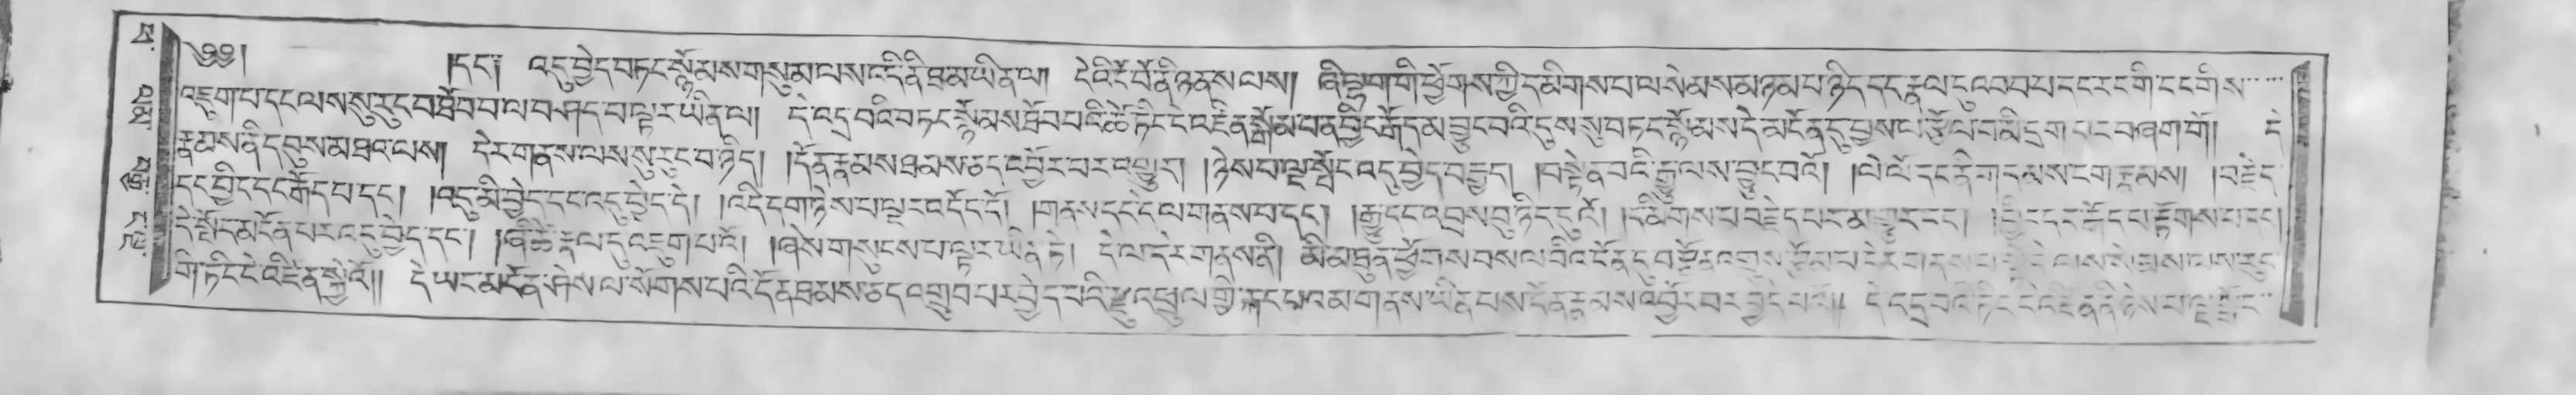 ༄༅། །དང་། འདུ་བྱེད་བཏང་སྙོམས་གསུམ་ལས་འདི་ནི་ཐམ་ཡིན་ལ། དེའི་ངོ་བོ་ནི་ཉན་ས་ལས། ཞི་ལྷག་གི་ཕྱོགས་ཀྱི་དམིགས་པ་ལ་སེམས་མཉམ་པ་ཉིད་དང་རྣལ་དུ་འབབ་པ་དང་རང་གི་ངང་གིས་
འཇུག་པ་དང་ལས་སུ་རུང་བ་ཐོབ་པ་ལ་བཤད་པ་ལྟར་ཡིན་ལ། དེ་འདྲ་བའི་བཏང་སྙོམས་ཐོབ་པའི་ཚེ་ཏིང་ངེ་འཛིན་སྒོམ་པ་ན་བྱིང་རྒོད་མ་བྱུང་བའི་དུས་སུ་བཏང་སྙོམས་དེ་མངོན་དུ་བྱས་ལ་རྩོལ་བ་མི་དྲག་པར་བཞག་གོ། །དེ་
རྣམས་ནི་དབུས་མཐའ་ལས། དེར་གནས་ལས་སུ་རུང་བ་ཉིད། །དོན་རྣམས་ཐམས་ཅད་འབྱོར་བར་འགྱུར། །ཉེས་པ་ལྔ་སྤོང་འདུ་བྱེད་བརྒྱད། །བསྟེན་བའི་རྒྱུ་ལས་བྱུང་བའོ། །ལེ་ལོ་དང་ནི་གདམས་ངག་རྣམས། །བརྗེད་
དང་བྱིང་དང་རྒོད་པ་དང་། །འདུ་མི་བྱེད་དང་འདུ་བྱེད་དེ། །འདི་དག་ཉེས་པ་ལྔར་འདོད་དོ། །གནས་དང་དེ་ལ་གནས་པ་དང་། །རྒྱུ་དང་འབྲས་བུ་ཉིད་དུའོ། །དམིགས་པ་བརྗེད་པར་མ་གྱུར་དང་། །བྱིང་དང་རྒོད་པ་རྟོགས་པ་དང་།
དེ་སྤོང་མངོན་པར་འདུ་བྱེད་དང་། །ཞི་ཚེ་རྣལ་དུ་འཇུག་པའོ། །ཞེས་གསུངས་པ་ལྟར་ཡིན་ཏེ། དེ་ལ་དེར་གནས་ནི། མི་མཐུན་ཕྱོགས་བསལ་བའི་དོན་དུ་བརྩོན་འགྲུས་རྩོམ་པ་དེར་གནས་པ་སྟེ་
གི་ཏིང་ངེ་འཛིན་སྐྱེའོ།། དེ་ཡང་མངོན་ཤེས་ལ་སོགས་པའི་དོན་ཐམས་ཅད་འགྲུབ་པར་བྱེད་པའི་རྫུ་འཕྲུལ་གྱི་རྐང་པའམ་གནས་ཡིན་པས་དོན་རྣམས་འབྱོར་བར་བྱེད་པའོ།། དེ་འདྲ་བའི་ཏིང་ངེ་འཛིན་ནི་ཉེས་པ་ལྔ་སྤོང་